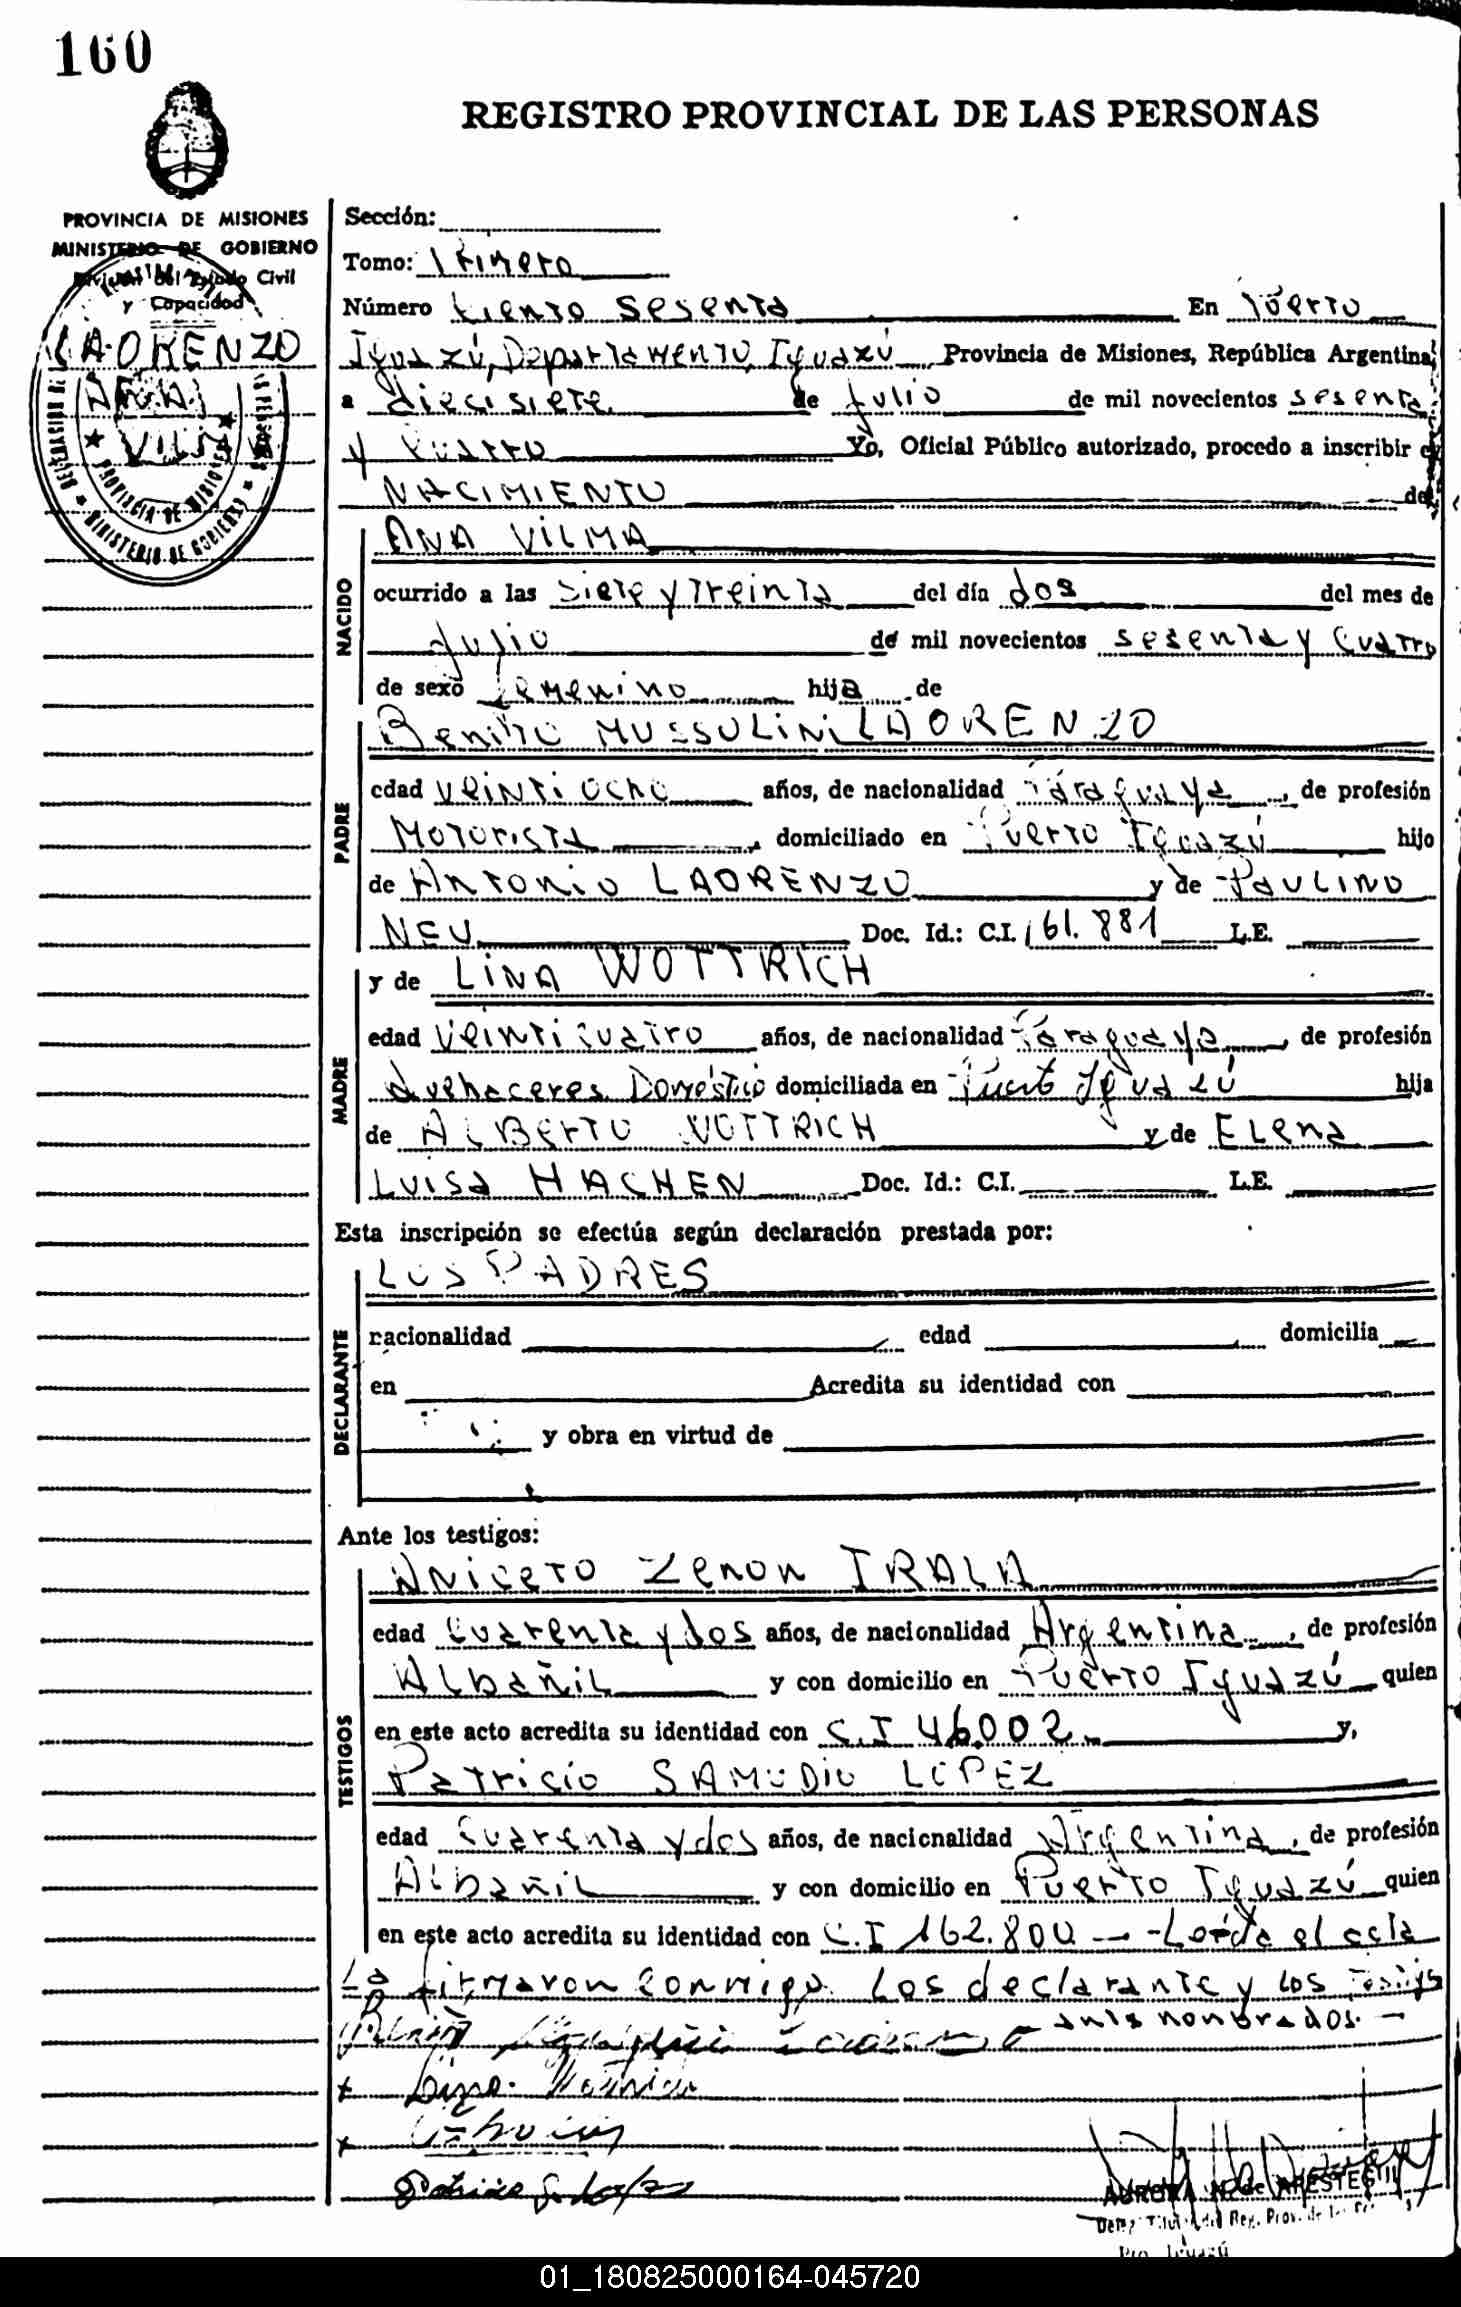 160
REGISTRO PROVINCIAL DE LAS PERSONAS
PROVINCIA DE MISIONES
MINISTERIO DE GOBIERNO
División del Estado Civil
y Capacidad
LAORENZO
ANA
VILMA
PROVINCIA DE MISIONES
MINISTERIO DE GOBIERNO
Sección:
Tomo: Primero
Número Ciento Sesenta En Puerto
Iguazú, Departamento, Iguazú Provincia de Misiones, República Argentina,
a diecisiete de Julio de mil novecientos sesenta
y Cuatro Yo, Oficial Público autorizado, procedo a inscribir el
NACIMIENTO de
NACIDO
ANA VILMA
ocurrido a las Siete y Treinta del día dos del mes de
Julio de mil novecientos sesenta y Cuatro
de sexo Femenino hija de
PADRE
Benito MUSSOLINI LAORENZO
edad veinti ocho años, de nacionalidad Paraguaya, de profesión
Motorista, domiciliado en Puerto Iguazú hijo
de Antonio LAORENZO y de PAULINO
NEU Doc. Id.: C.I. 161.881 L.E.
MADRE
y de LINA WOTTRICH
edad Veinticuatro años, de nacionalidad Paraguaya, de profesión
Quehaceres Doméstico domiciliada en Puerto Iguazú hija
de ALBERTO WOTTRICH y de ELena
Luisa HACHEN Doc. Id.: C.I. L.E.
Esta inscripción se efectúa según declaración prestada por:
DECLARANTE
LOS PADRES
nacionalidad edad domicilia
en Acredita su identidad con
y obra en virtud de
Ante los testigos:
TESTIGOS
Aniceto Zenon IRALA
edad Cuarenta y dos años, de nacionalidad Argentina, de profesión
Albañil y con domicilio en Puerto Iguazú quien
en este acto acredita su identidad con C.I 46.002 y,
Patricio SAMUDIO LOPEZ
edad Cuarenta y dos años, de nacionalidad Argentina, de profesión
Albañil y con domicilio en Puerto Iguazú quien
en este acto acredita su identidad con C.I 162.800 - Leída el acta
La firmaron conmigo Los declarante y los Testigs
ante nonbrados. -
Lina Wottrich
AURORA N. de ARESTEGUI
01_180825000164-045720